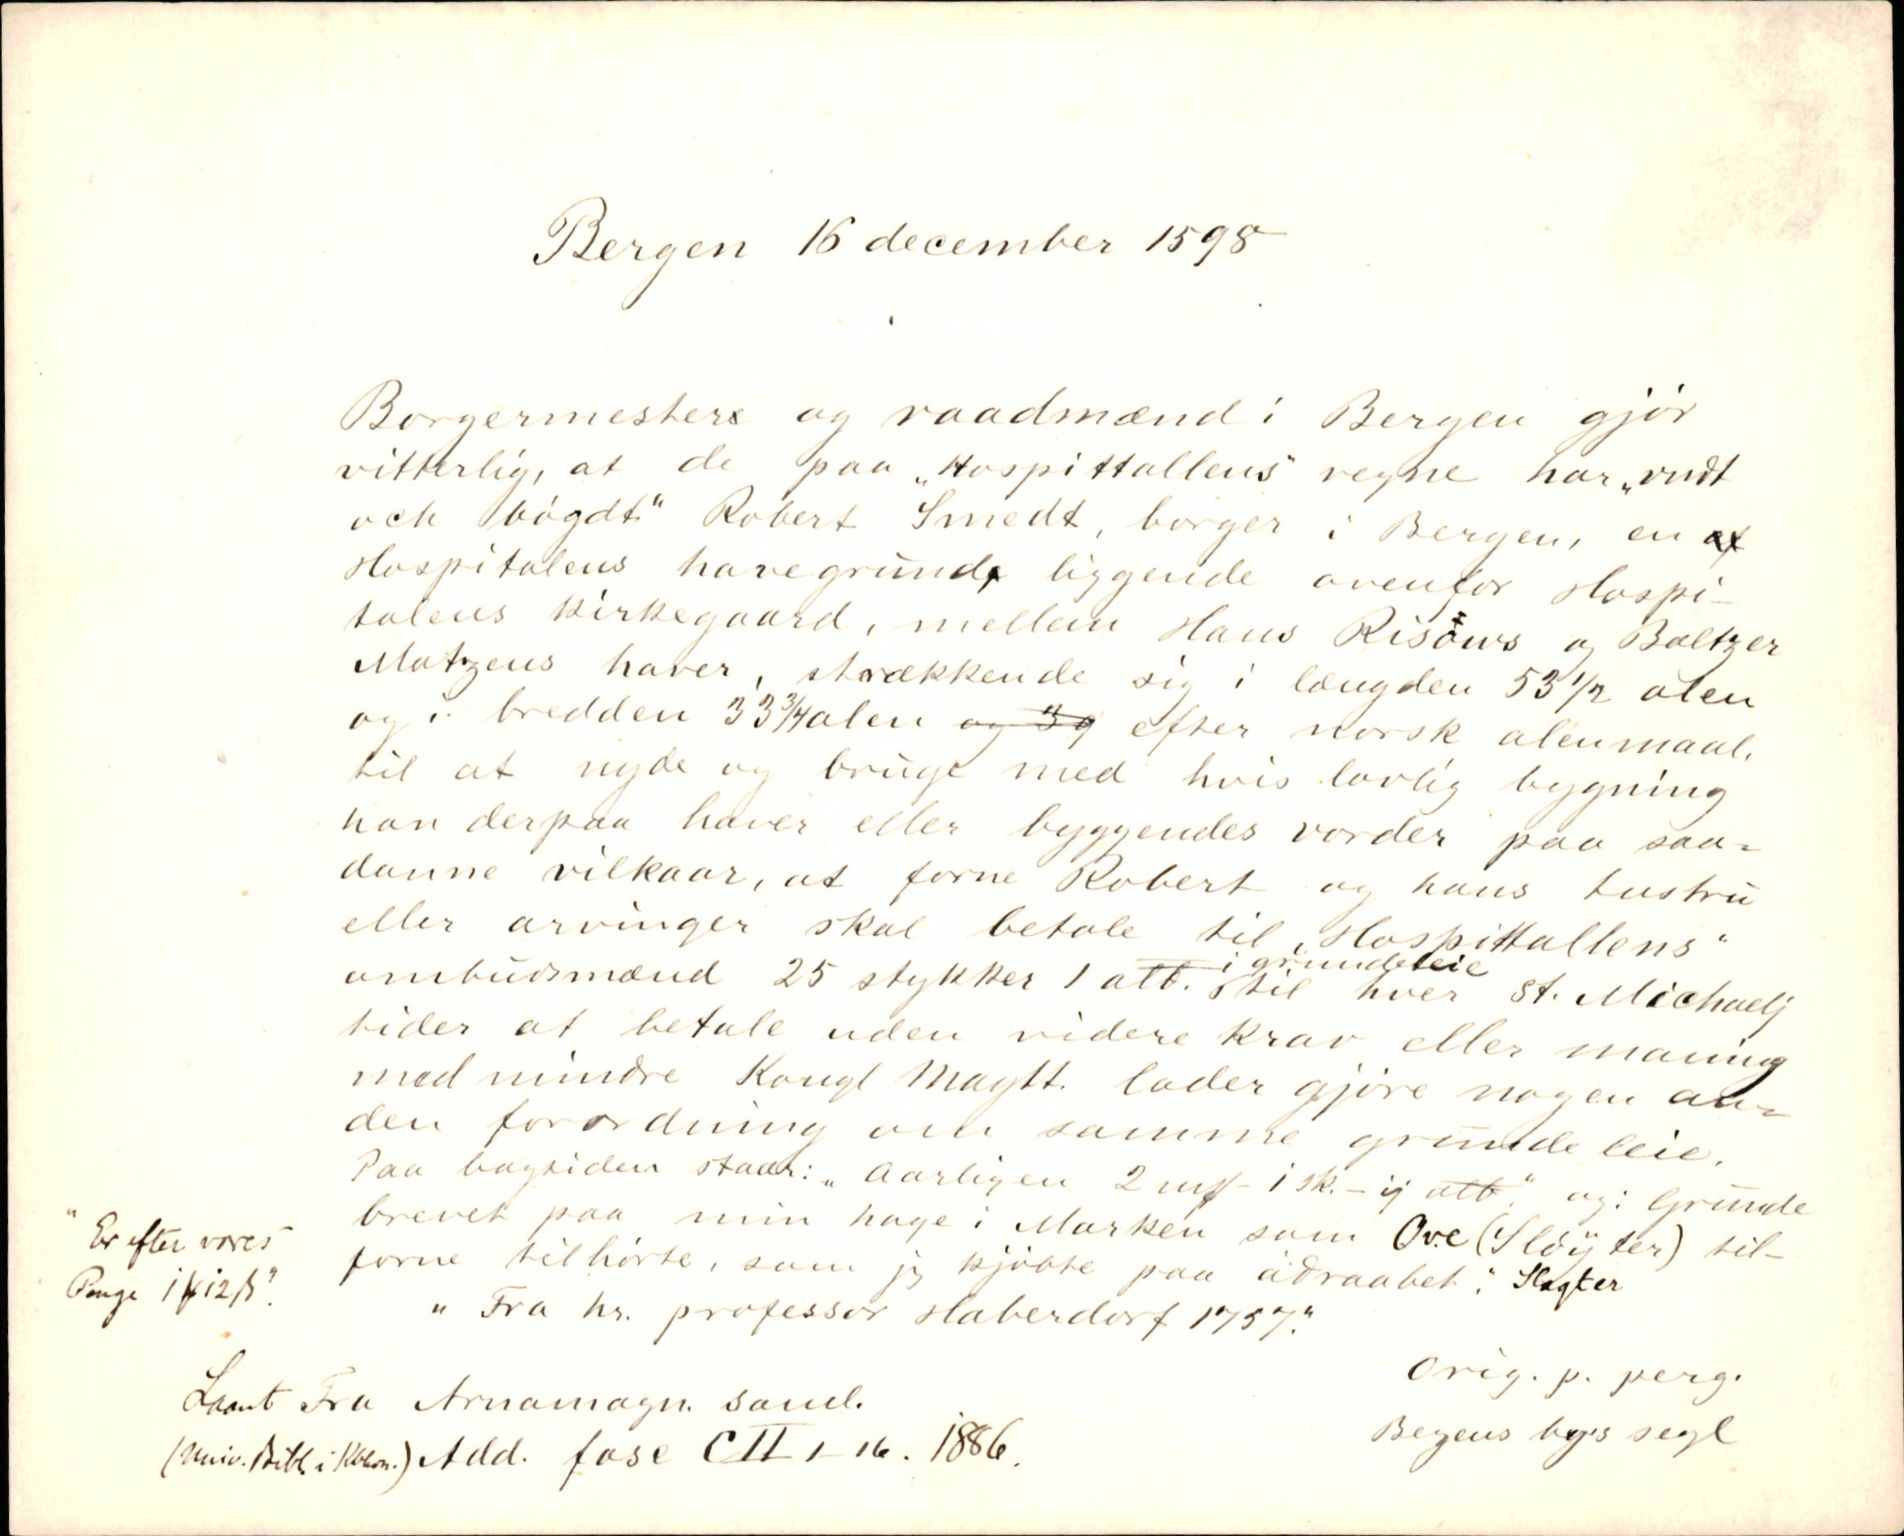 Bergen 16 december 1598
Borgermestere og raadmænd i Bergen gjör
vitterlig, at de paa „Hospittallens" vegne har „undt
och bögdt" Robert Smedt, borger i Bergen, en af
Hospitalens havegrund, liggende ovenfor Hospi-
talens Kirkegaard, mellem Hans Risöws og Baltzer
Matzens haver, strækkende sig i længden 53 1/2 alen
og i bredden 33 3/4 alen og 39 efter norsk alenmaal.
til at nyde og bruge med hvis lovlig bygning
han derpaa haver eller byggendes vorder paa saa-
danne vilkaar, at forne Robert og hans hustru
eller arvinger skal betale til „Hospittallens"
i grundeleie
ombudsmænd 25 stykker 1 alb. til hver St. Michaelj
tider at betale uden videre krav eller maning
med mindre Kongl Maytt. lader gjöre nogen an-
den forordning om samme grunde leie.
Paa bagsiden staar: „Aarligen 2 mk - 1 sk. - ij alb." og: Grunde
brevet paa min hage i Marken som Ove (Slöyter) til-
forne tilhörte, som jeg kjöbte paa adraabet". Slagter
" Fra hr. professor Haberdorf 1757."
" Er efter vores
Penge 1 12 ß".
Laant Fra Arnamagn. saml.
(Univ. Bibl. i Kbhvn.) Add. fasc CII 1-16. 1886.
Orig. p. perg.
Begens bys segl